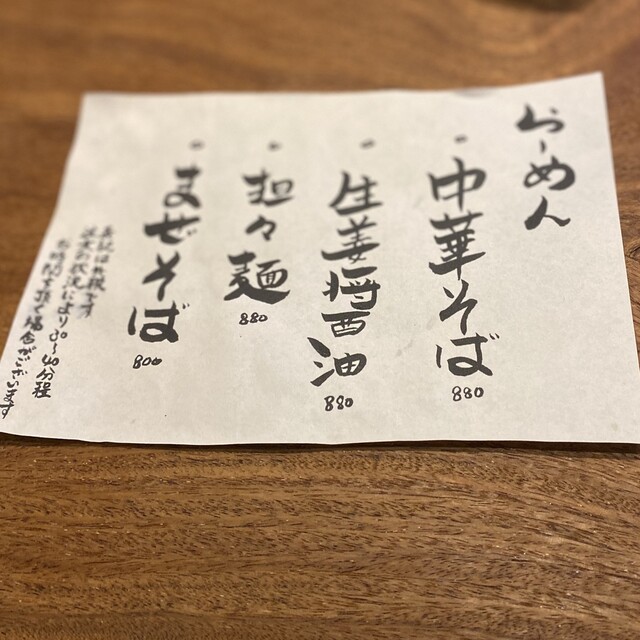 らーめん
・中華そば 880
・生姜醤油 880
・担々麺 880
・まぜそば 800
表記は外税です
注文の状況により30〜40分程
お時間を頂く場合がございます